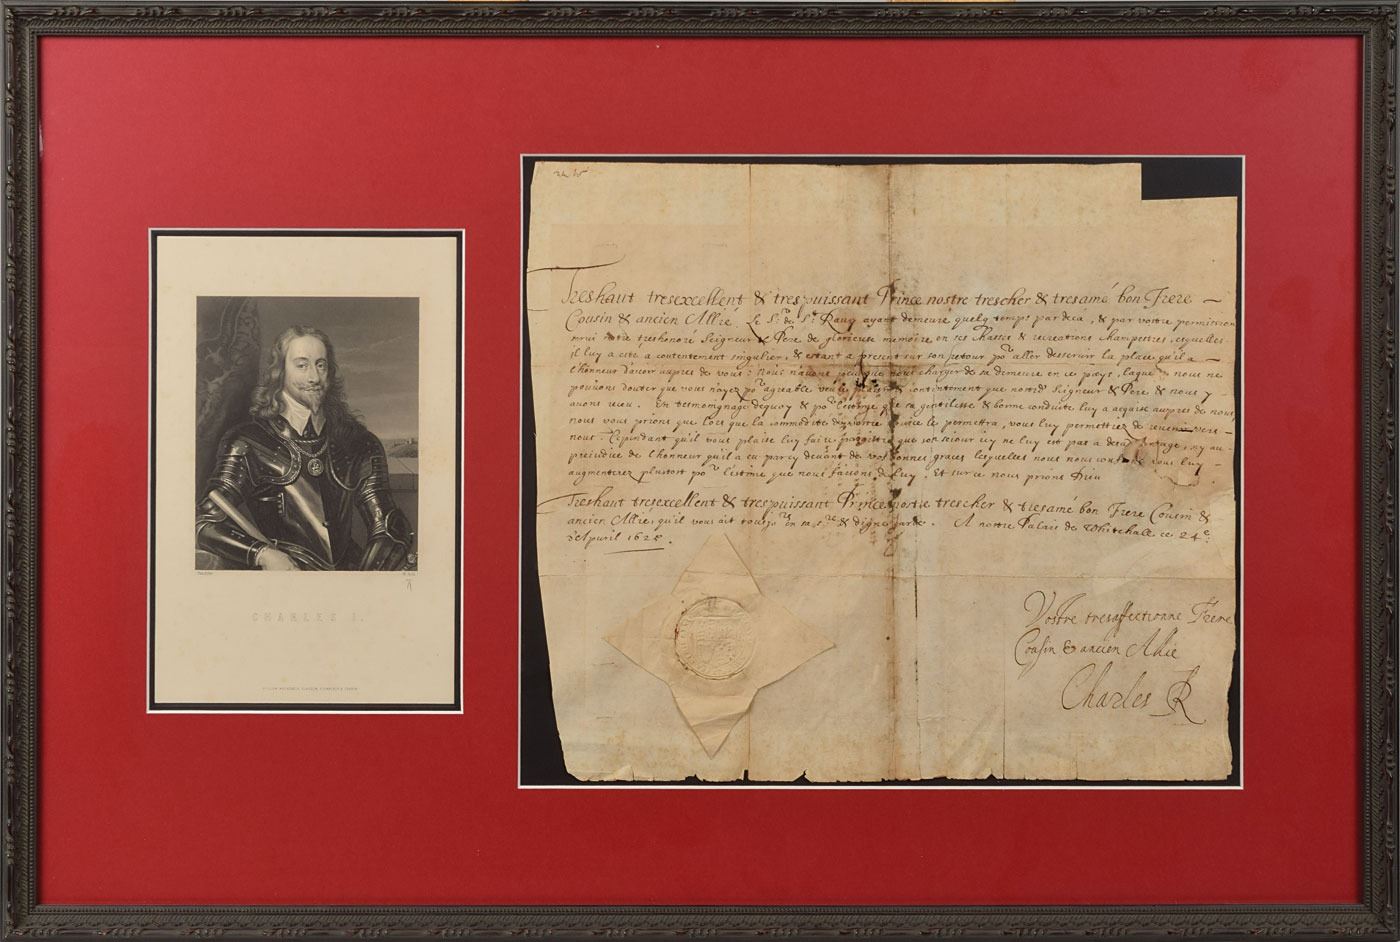 CHARLES I.
Treshaut tresexcellent & trespuissant Prince nostre trescher & tresamé bon Frere
Cousin & ancien Allié. Le Sr. de St. Rauy ayant demeuré quelq temps pardeça, & par vostre permission
seruì nostre treshonoré Seigneur & Pere de glorieuse memoire en ses Chasses & recreations champestres, esquelles
il luy a esté a contentement singulier, & estant a present sur son retour pour aller desseruir la place qu'il a
l'honneur d'auoir aupres de vous: Nous n'auons que nous charger de sa demeure en ce pays, laquelle nous ne
pouuons douter que vous n'ayez pour agreable veu le plaisir & contentement que nostred. Seigneur & Pere & nous y
auons receu. En tesmoingnage dequoy & pour l'estime que sa gentilesse & bonne conduite luy a acquise aupres de nous
nous vous prions que lors que la commodité de vostre seruice le permettra, vous luy permettiez de reuenir vers
nous. Cependant qu'il vous plaise luy faire paroistre que son sejour icy ne luy est pas a desaduantage, ny au
prejudice de l'honneur qu'il a eu par cy deuant de vos bonnes graces lesquelles nous nous vous luy
augmenterez plustost pour l'estime que nous faisons de luy. Et sur ce nous prions Dieu
Treshaut tresexcellent & trespuissant Prince nostre trescher & tresamé bon Frere Cousin &
ancien Allié, qu'il vous ait tousjours en sa ste & digne garde. A nostre Palais de Whitehall ce 24e
d'Apuril 162
Vostre tresaffectionne Frere
Cousin & ancien Allié
Charles R